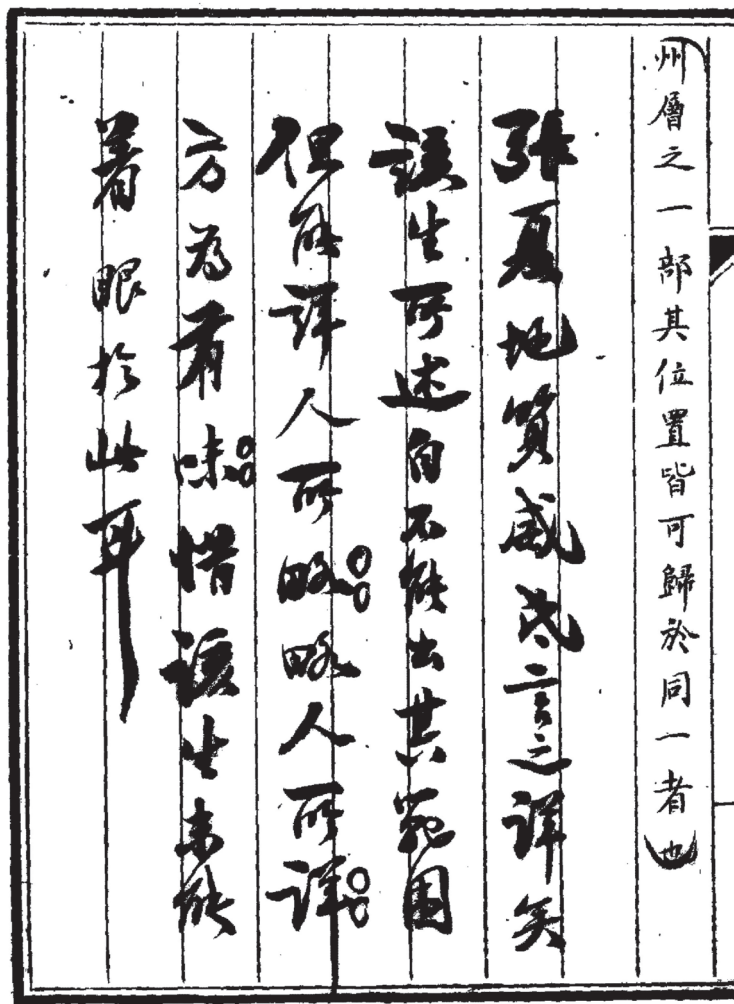 州層之一部其位置皆可歸於同一者也
張夏地質威氏言之詳矣
該生所述自不能出其範圍
但能詳人所略略人所詳
方為有味惜該生未能
着眼於此耳